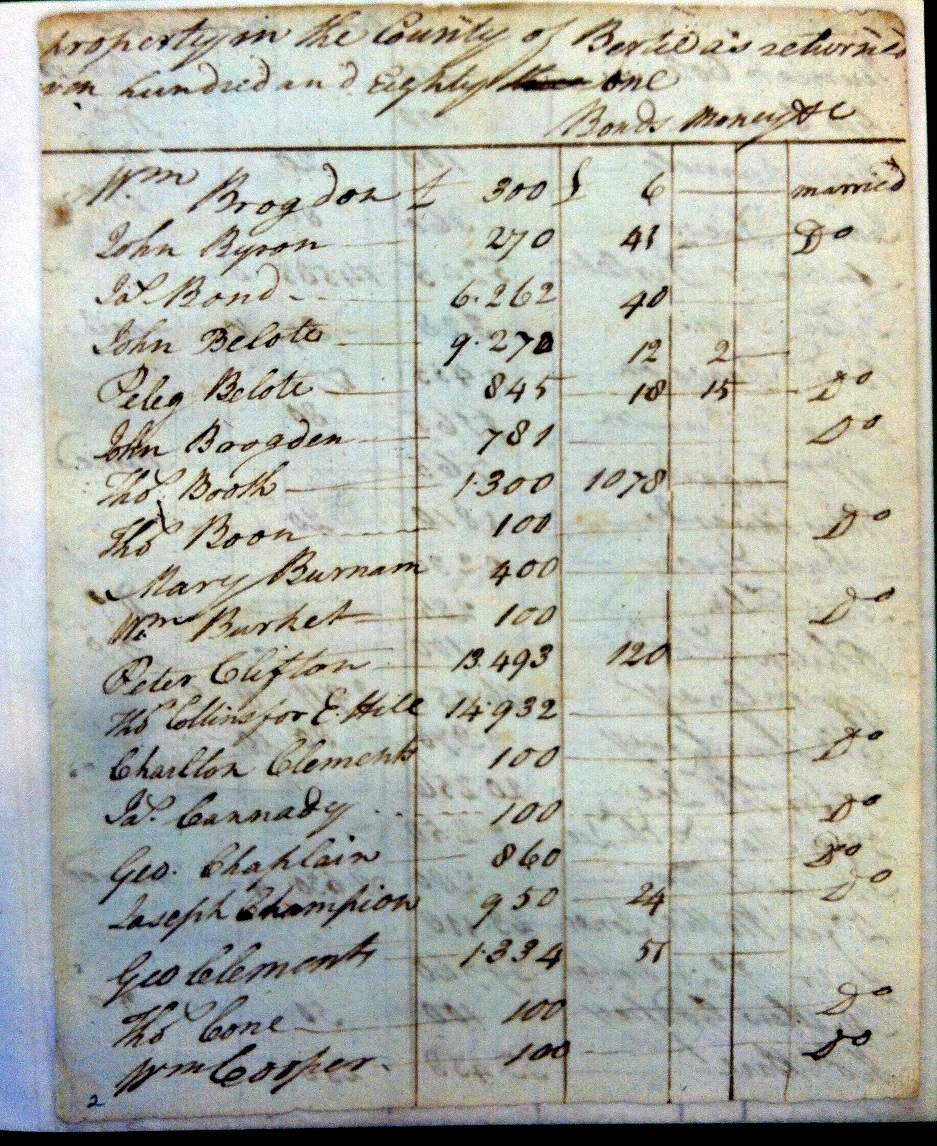 property in the County of Bertie as returned
hundred and Eighty one
Bonds Money &c
Wm Brogdon £ 300 £ 6 married
John Byron 270 41 Do
Jas. Bond 6.262 40
John Belote 9.270 12 2
Peleg Belote 845 18 15 Do
John Brogden 781 Do
Thos. Booth 1.300 1078
Thos Boon 100 Do
Mary Burnam 400
Wm Burket 100 Do
Peter Clifton 13.493 120
Thos Collins for E. Hill 14.932
Charlton Clements 100 Do
Jas. Cannady 100 Do
Geo. Chaplain 860 Do
Joseph Champion 950 24 Do
Geo Clements 1.334 51
Thos Cone 100 Do
Wm Cooper. 100 Do
2